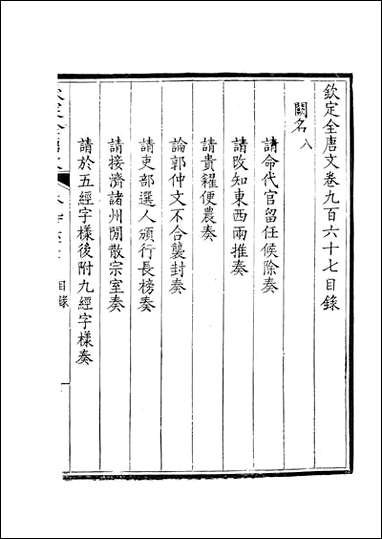 欽定全唐文卷九百六十七目錄
闕名八
請命代官留任候除奏
請改知東西兩推奏
請貴糴便農奏
論郭仲文不合襲封奏
請吏部選人頒行長榜奏
請接濟諸州閒散宗室奏
請於五經字樣後附九經字樣奏
目錄